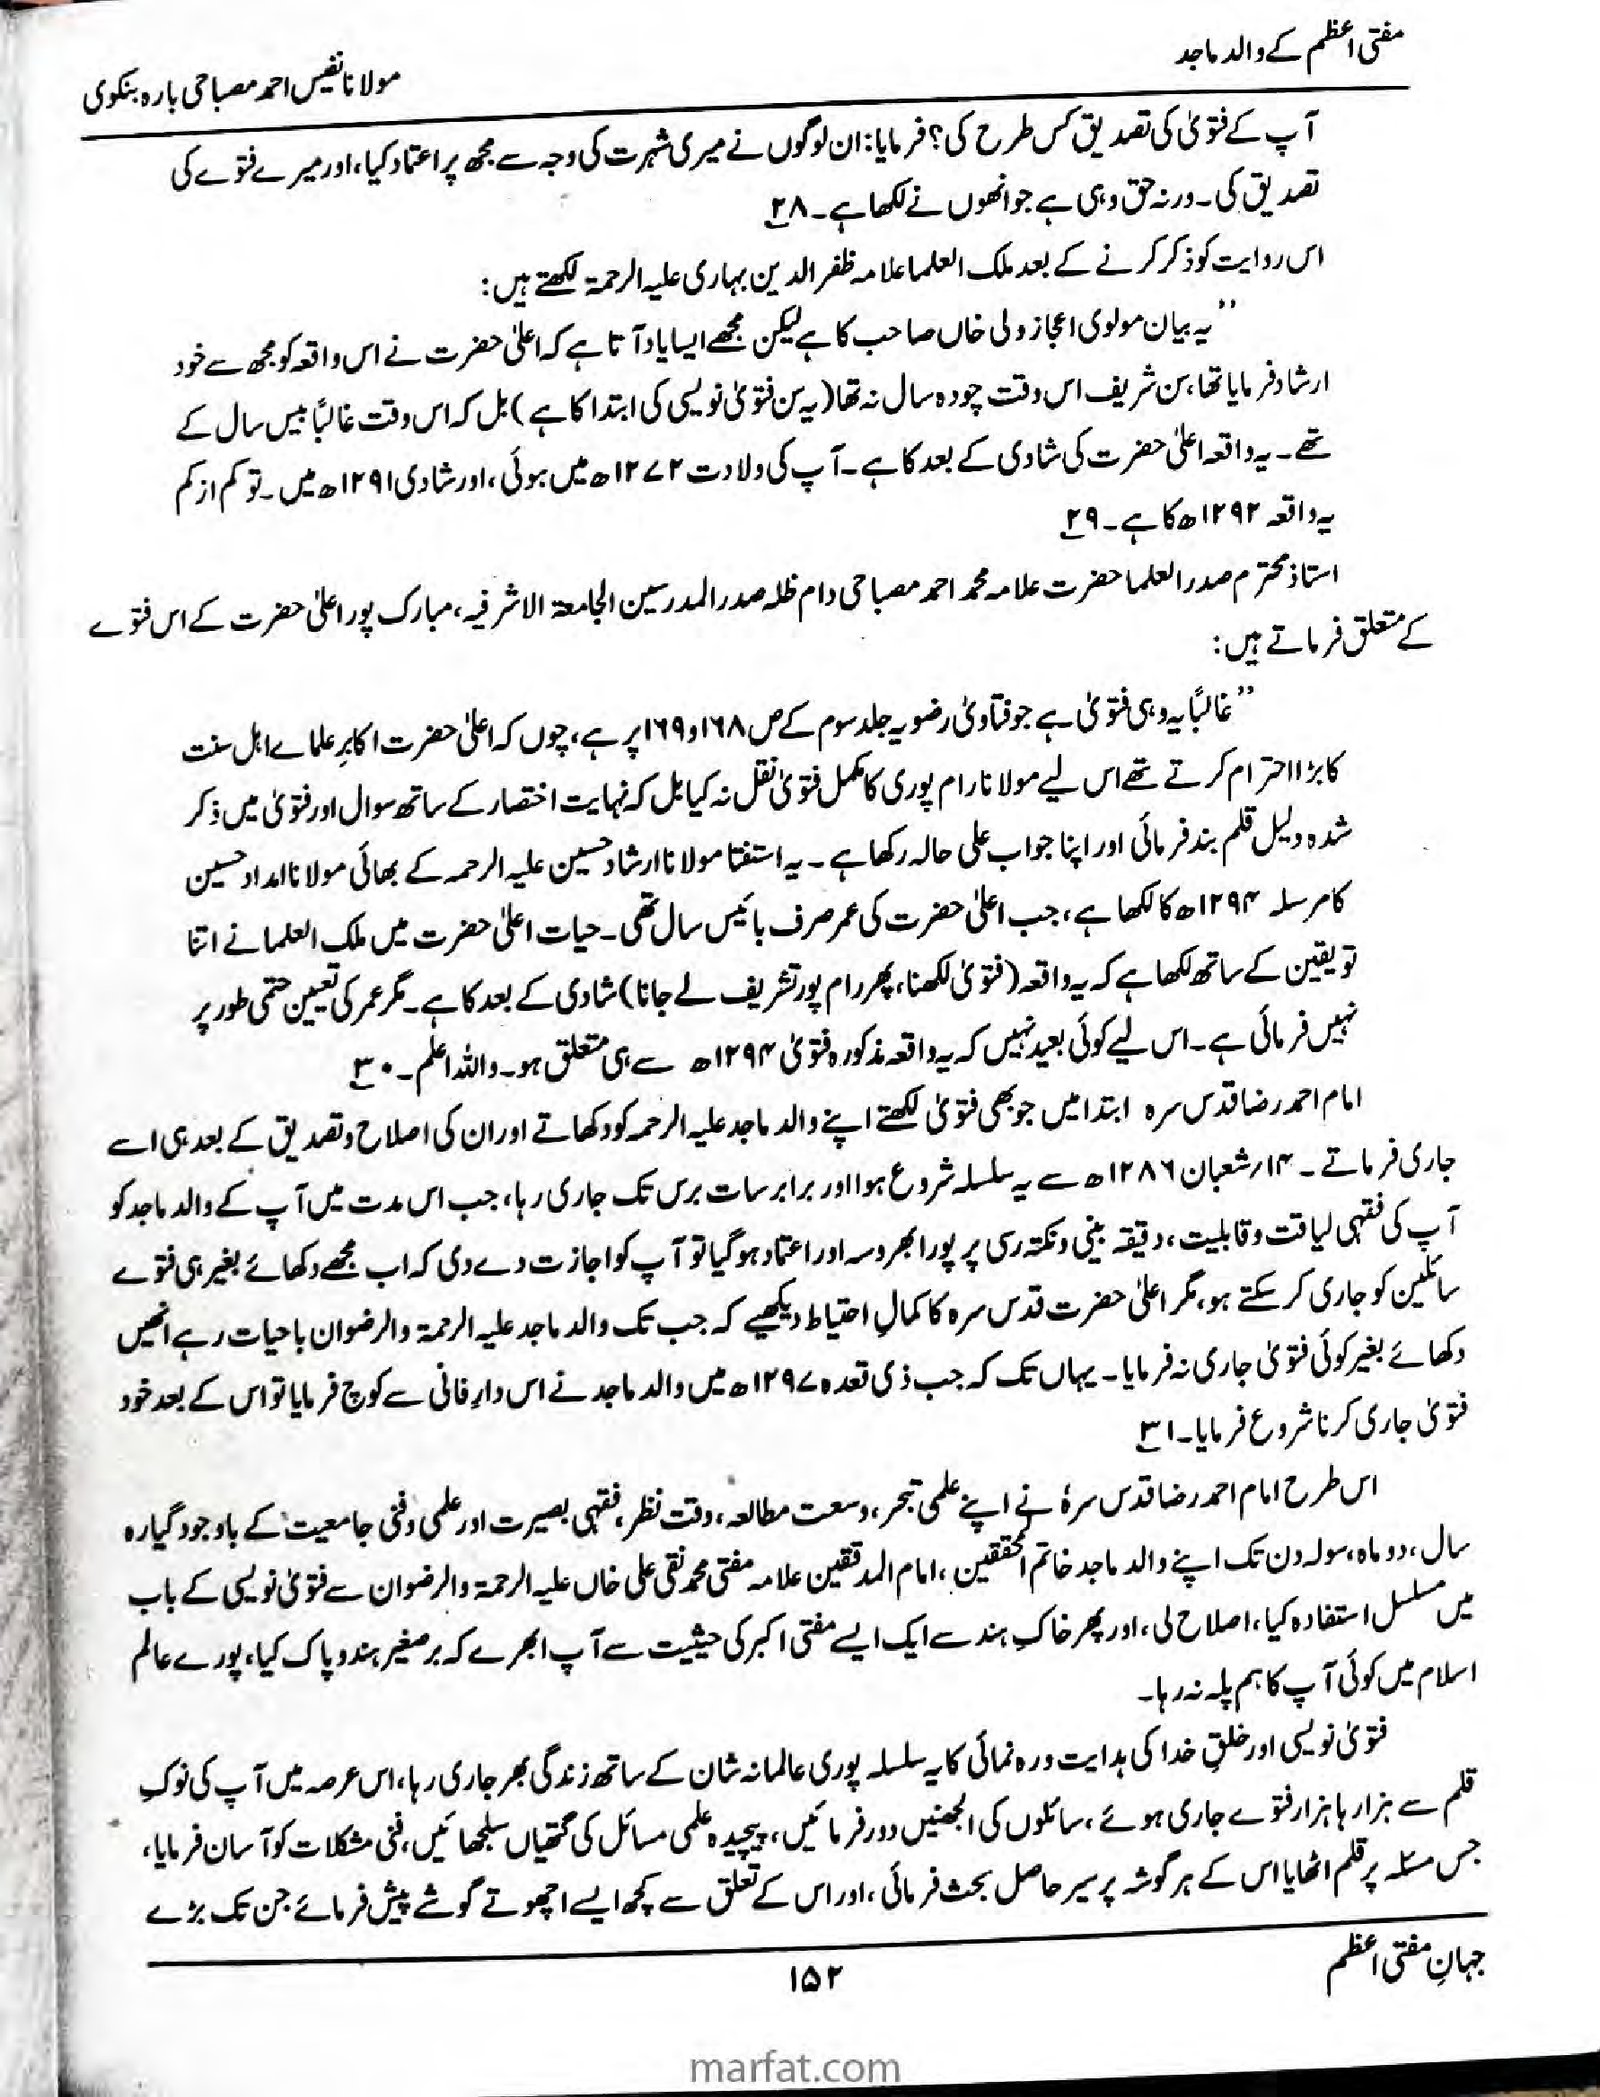 مفتی اعظم کے والد ماجد
مولانا نفیس احمد مصباحی بارہ بنکوی
آپ کے فتویٰ کی تصدیق کس طرح کی؟ فرمایا: ان لوگوں نے میری شہرت کی وجہ سے مجھ پر اعتماد کیا، اور میرے فتوے کی
تصدیق کی۔ ورنہ حق وہی ہے جو انھوں نے لکھا ہے۔ ۲۸
اس روایت کو ذکر کرنے کے بعد ملک العلما علامہ ظفر الدین بہاری علیہ الرحمۃ لکھتے ہیں:
”یہ بیان مولوی اعجاز ولی خاں صاحب کا ہے لیکن مجھے ایسا یاد آتا ہے کہ اعلیٰ حضرت نے اس واقعہ کو مجھ سے خود
ارشاد فرمایا تھا، سن شریف اس وقت چودہ سال نہ تھا (یہ سن فتویٰ نویسی کی ابتدا کا ہے) بل کہ اس وقت غالباً بیس سال کے
تھے۔ یہ واقعہ اعلیٰ حضرت کی شادی کے بعد کا ہے۔ آپ کی ولادت ۱۲۷۲ھ میں ہوئی، اور شادی ۱۲۹۱ھ میں۔ تو کم از کم
یہ واقعہ ۱۲۹۲ھ کا ہے۔ ۲۹
استاذ محترم صدر العلما حضرت علامہ محمد احمد مصباحی دام ظلہ صدر المدرسین الجامعۃ الاشرفیہ، مبارک پور اعلیٰ حضرت کے اس فتوے
کے متعلق فرماتے ہیں:
”غالباً یہ وہی فتویٰ ہے جو فتاویٰ رضویہ جلد سوم کے ص ۱۶۸ و ۱۶۹ پر ہے، چوں کہ اعلیٰ حضرت اکابرِ علماے اہل سنت
کا بڑا احترام کرتے تھے اس لیے مولانا رام پوری کا مکمل فتویٰ نقل نہ کیا بل کہ نہایت اختصار کے ساتھ سوال اور فتویٰ میں ذکر
شدہ دلیل قلم بند فرمائی اور اپنا جواب علی حالہ رکھا ہے۔ یہ استفتا مولانا ارشاد حسین علیہ الرحمہ کے بھائی مولانا امداد حسین
کا مرسلہ ۱۲۹۴ھ کا لکھا ہے، جب اعلیٰ حضرت کی عمر صرف بائیس سال تھی۔ حیات اعلیٰ حضرت میں ملک العلما نے اتنا
تو یقین کے ساتھ لکھا ہے کہ یہ واقعہ (فتویٰ لکھنا، پھر رام پور تشریف لے جانا) شادی کے بعد کا ہے۔ مگر عمر کی تعیین حتمی طور پر
نہیں فرمائی ہے۔ اس لیے کوئی بعید نہیں کہ یہ واقعہ مذکورہ فتویٰ ۱۲۹۴ھ سے ہی متعلق ہو۔ واللہ اعلم۔ ۳۰
امام احمد رضا قدس سرہ ابتدا میں جو بھی فتویٰ لکھتے اپنے والد ماجد علیہ الرحمہ کو دکھاتے اور ان کی اصلاح و تصدیق کے بعد ہی اسے
جاری فرماتے۔ ۱۴/ شعبان ۱۲۸۶ھ سے یہ سلسلہ شروع ہوا اور برابر سات برس تک جاری رہا، جب اس مدت میں آپ کے والد ماجد کو
آپ کی فقہی لیاقت و قابلیت، دقیقہ بینی و نکتہ رسی پر پورا بھروسہ اور اعتماد ہو گیا تو آپ کو اجازت دے دی کہ اب مجھے دکھائے بغیر ہی فتوے
سائلین کو جاری کر سکتے ہو، مگر اعلیٰ حضرت قدس سرہ کا کمالِ احتیاط دیکھیے کہ جب تک والد ماجد علیہ الرحمۃ والرضوان باحیات رہے انھیں
دکھائے بغیر کوئی فتویٰ جاری نہ فرمایا۔ یہاں تک کہ جب ذی قعدہ ۱۲۹۷ھ میں والد ماجد نے اس دارِ فانی سے کوچ فرمایا تو اس کے بعد خود
فتویٰ جاری کرنا شروع فرمایا۔ ۳۱
اس طرح امام احمد رضا قدس سرہٗ نے اپنے علمی تبحر، وسعت مطالعہ، دقت نظر، فقہی بصیرت اور علمی و فنی جامعیت کے باوجود گیارہ
سال، دو ماہ، سولہ دن تک اپنے والد ماجد خاتم المحققین، امام المدققین علامہ مفتی محمد نقی علی خاں علیہ الرحمۃ والرضوان سے فتویٰ نویسی کے باب
میں مسلسل استفادہ کیا، اصلاح لی، اور پھر خاکِ ہند سے ایک ایسے مفتی اکبر کی حیثیت سے آپ ابھرے کہ بر صغیر ہند و پاک کیا، پورے عالم
اسلام میں کوئی آپ کا ہم پلہ نہ رہا۔
فتویٰ نویسی اور خلقِ خدا کی ہدایت و رہ نمائی کا یہ سلسلہ پوری عالمانہ شان کے ساتھ زندگی بھر جاری رہا، اس عرصہ میں آپ کی نوکِ
قلم سے ہزارہا ہزار فتوے جاری ہوئے، سائلوں کی الجھنیں دور فرمائیں، پیچیدہ علمی مسائل کی گتھیاں سلجھائیں، فنی مشکلات کو آسان فرمایا،
جس مسئلہ پر قلم اٹھایا اس کے ہر گوشہ پر سیر حاصل بحث فرمائی، اور اس کے تعلق سے کچھ ایسے اچھوتے گوشے پیش فرمائے جن تک بڑے
جہانِ مفتی اعظم
۱۵۲
marfat.com